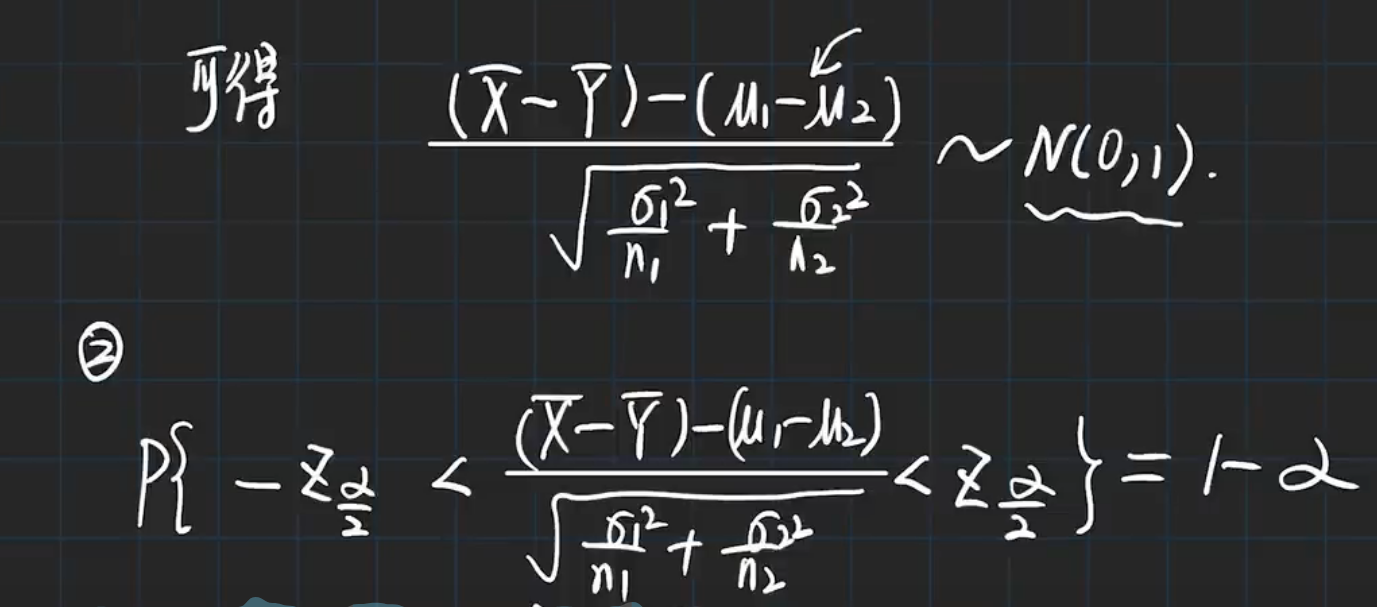 可得 \frac{(\overline{X}-\overline{Y})-(\mu_1-\mu_2)}{\sqrt{\frac{\sigma_1^2}{n_1}+\frac{\sigma_2^2}{n_2}}} \sim N(0,1).
②
P\{-z_{\frac{\alpha}{2}}<\frac{(\overline{X}-\overline{Y})-(\mu_1-\mu_2)}{\sqrt{\frac{\sigma_1^2}{n_1}+\frac{\sigma_2^2}{n_2}}}<z_{\frac{\alpha}{2}}\}=1-\alpha